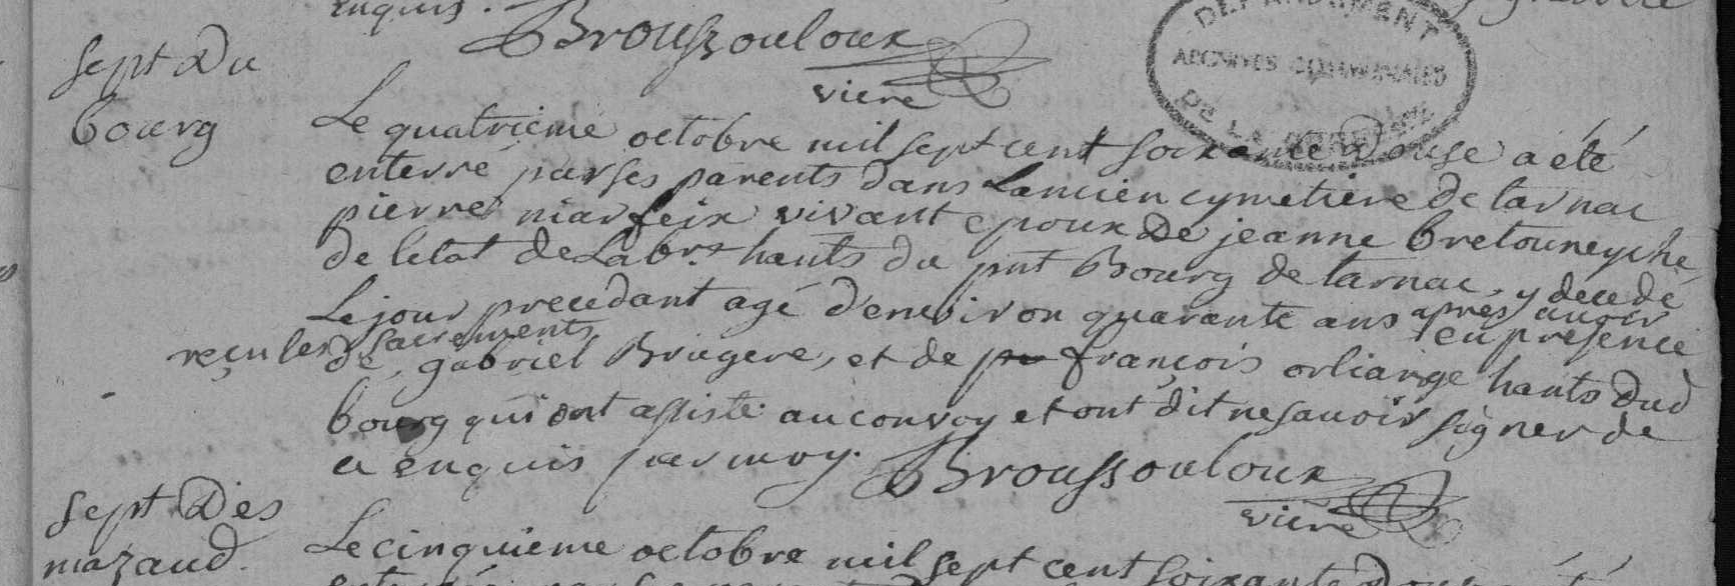 enquis.
Broussouloux
vicre
DEPARTEMENT
ARCHIVES COMMUNALES
DE LA CORREZE
sept Du
bourg
Le quatrieme octobre mil sept cent soixante Douse a été
enterré par ses parents dans Lancien cymetiere de tarnac
pierre niarfeix vivant epoux De jeanne bretouneyche
de letat de Labr.r hants du pnt Bourg de tarnac, y decedé
Le jour precedant agé denviron quarante ans apres avoir
reçu les sacrements en presence
de, gabriel Brugere, et de françois orliange hants dud
bourg qui ont assisté au convoy et ont dit ne sauoir signer de
ce enquis par moy. Broussouloux
vicre
sept Des
mazaud.
Le cinquieme octobre mil sept cent soixante Douse a été